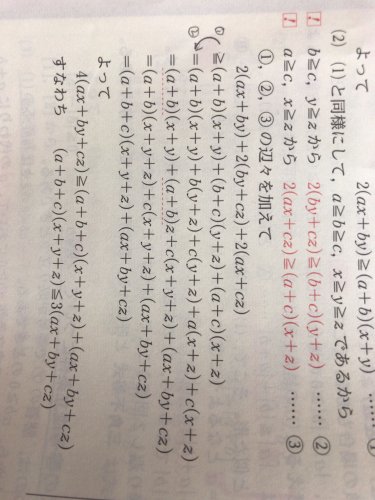 2(ax+by)≧(a+b)(x+y) ……①
(2) (1)と同様にして，a≧b≧c, x≧y≧z であるから
! b≧c, y≧z から 2(by+cz)≧(b+c)(y+z) ……②
! a≧c, x≧z から 2(ax+cz)≧(a+c)(x+z) ……③
①，②，③の辺々を加えて
2(ax+by)+2(by+cz)+2(ax+cz)
① ≧(a+b)(x+y)+(b+c)(y+z)+(a+c)(x+z)
② =(a+b)(x+y)+b(y+z)+c(y+z)+a(x+z)+c(x+z)
=(a+b)(x+y)+(a+b)z+c(x+y+z)+(ax+by+cz)
=(a+b)(x+y+z)+c(x+y+z)+(ax+by+cz)
=(a+b+c)(x+y+z)+(ax+by+cz)
よって
4(ax+by+cz)≧(a+b+c)(x+y+z)+(ax+by+cz)
すなわち (a+b+c)(x+y+z)≦3(ax+by+cz)